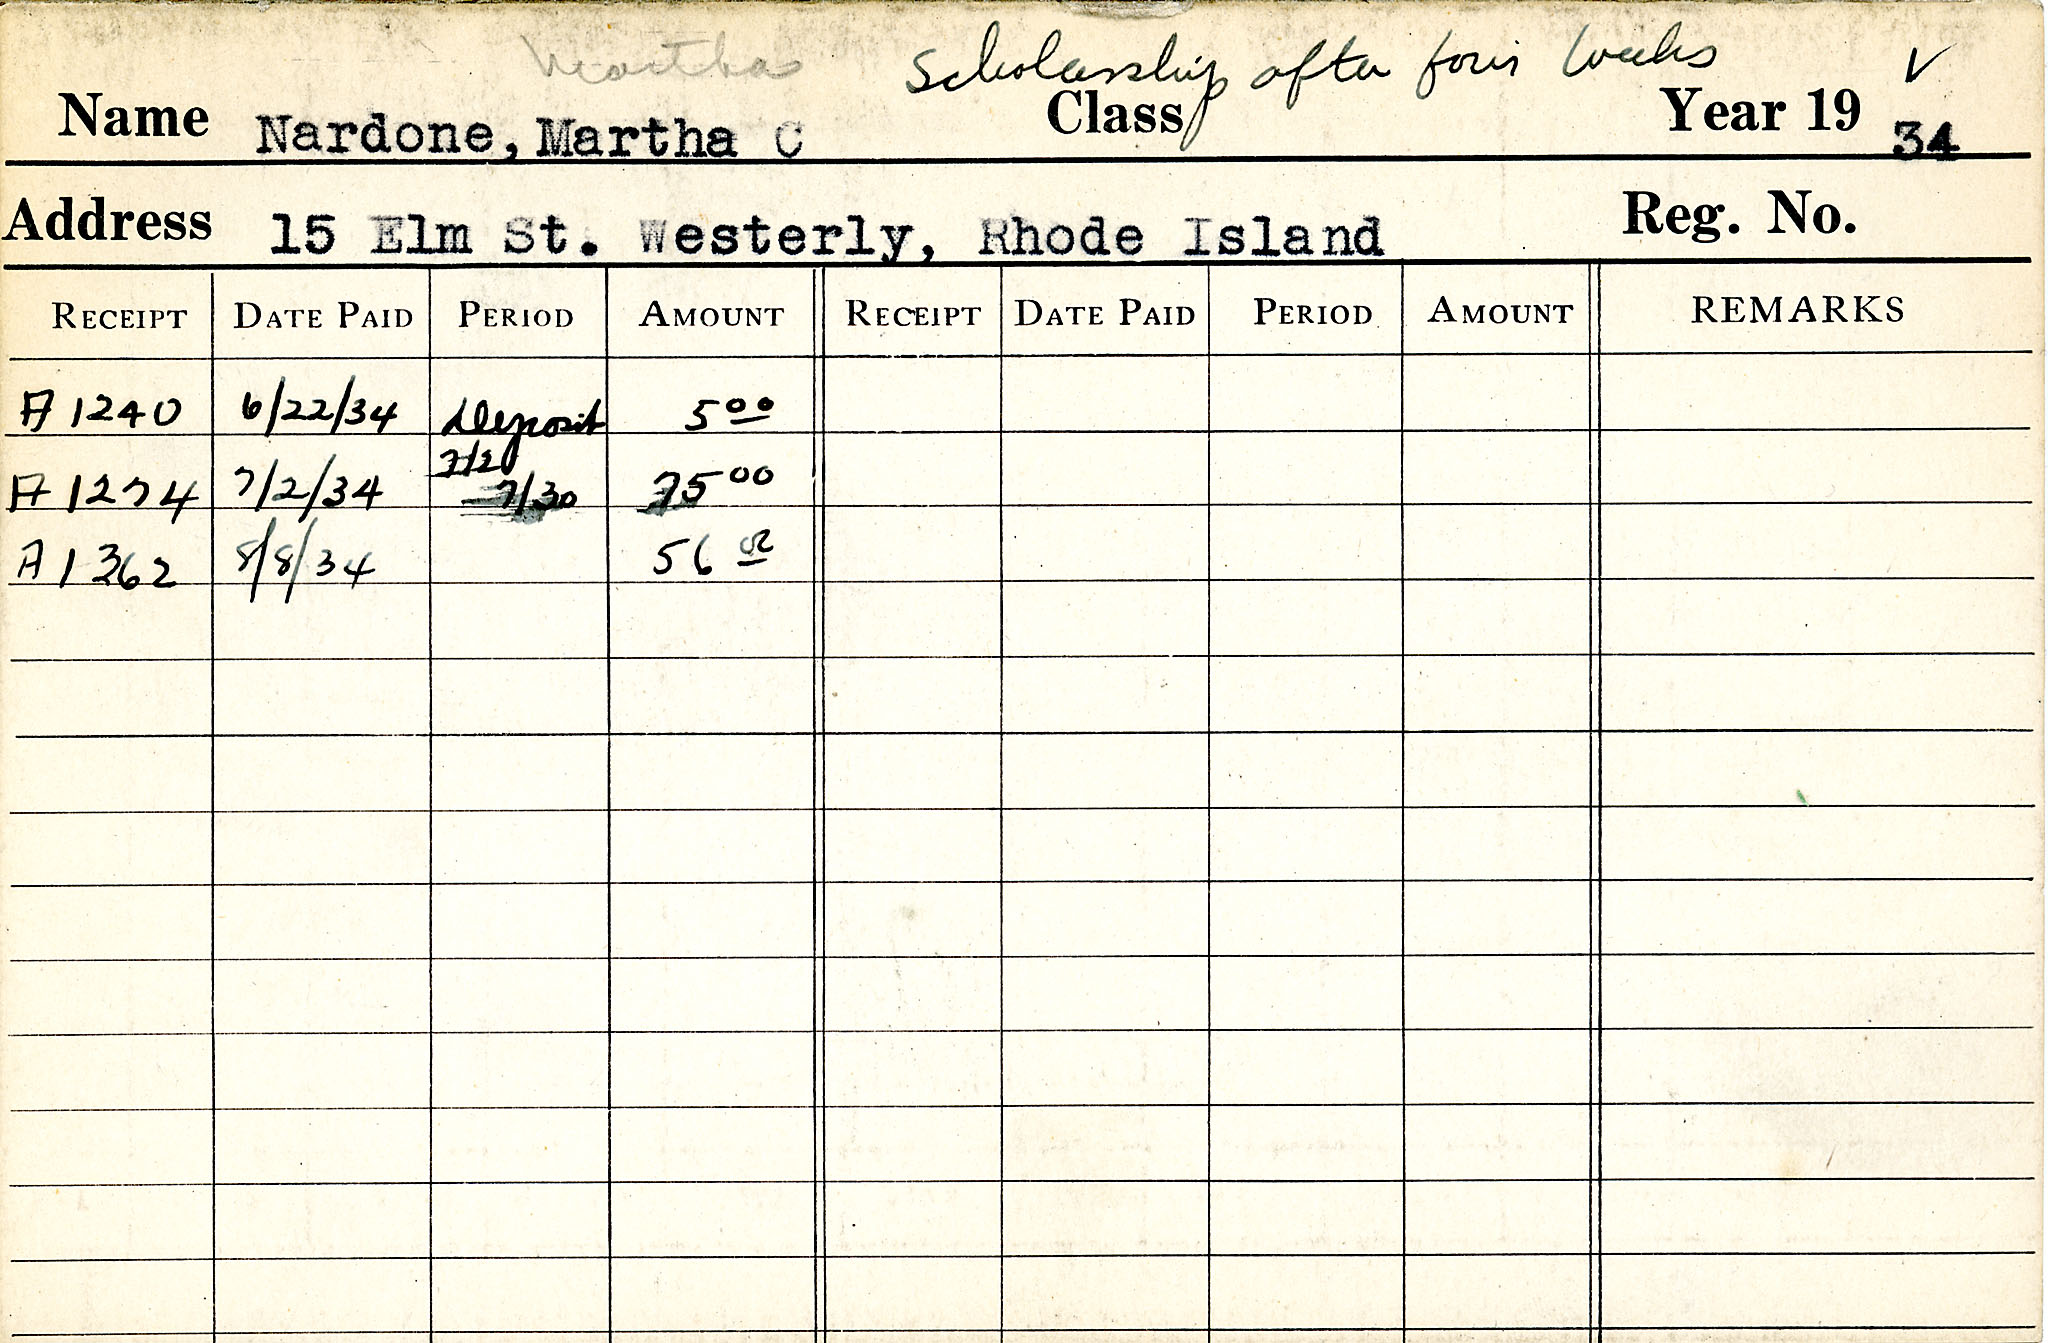 Martha Scholarship after four weeks
Name Nardone, Martha C Class Year 19 34
Address 15 Elm St. Westerly, Rhode Island Reg. No.
RECEIPT DATE PAID PERIOD AMOUNT RECEIPT DATE PAID PERIOD AMOUNT REMARKS
A 1240 6/22/34 Deposit 5 00
7/2
A 1274 7/2/34 — 7/30 75 00
A 1362 8/8/34 56